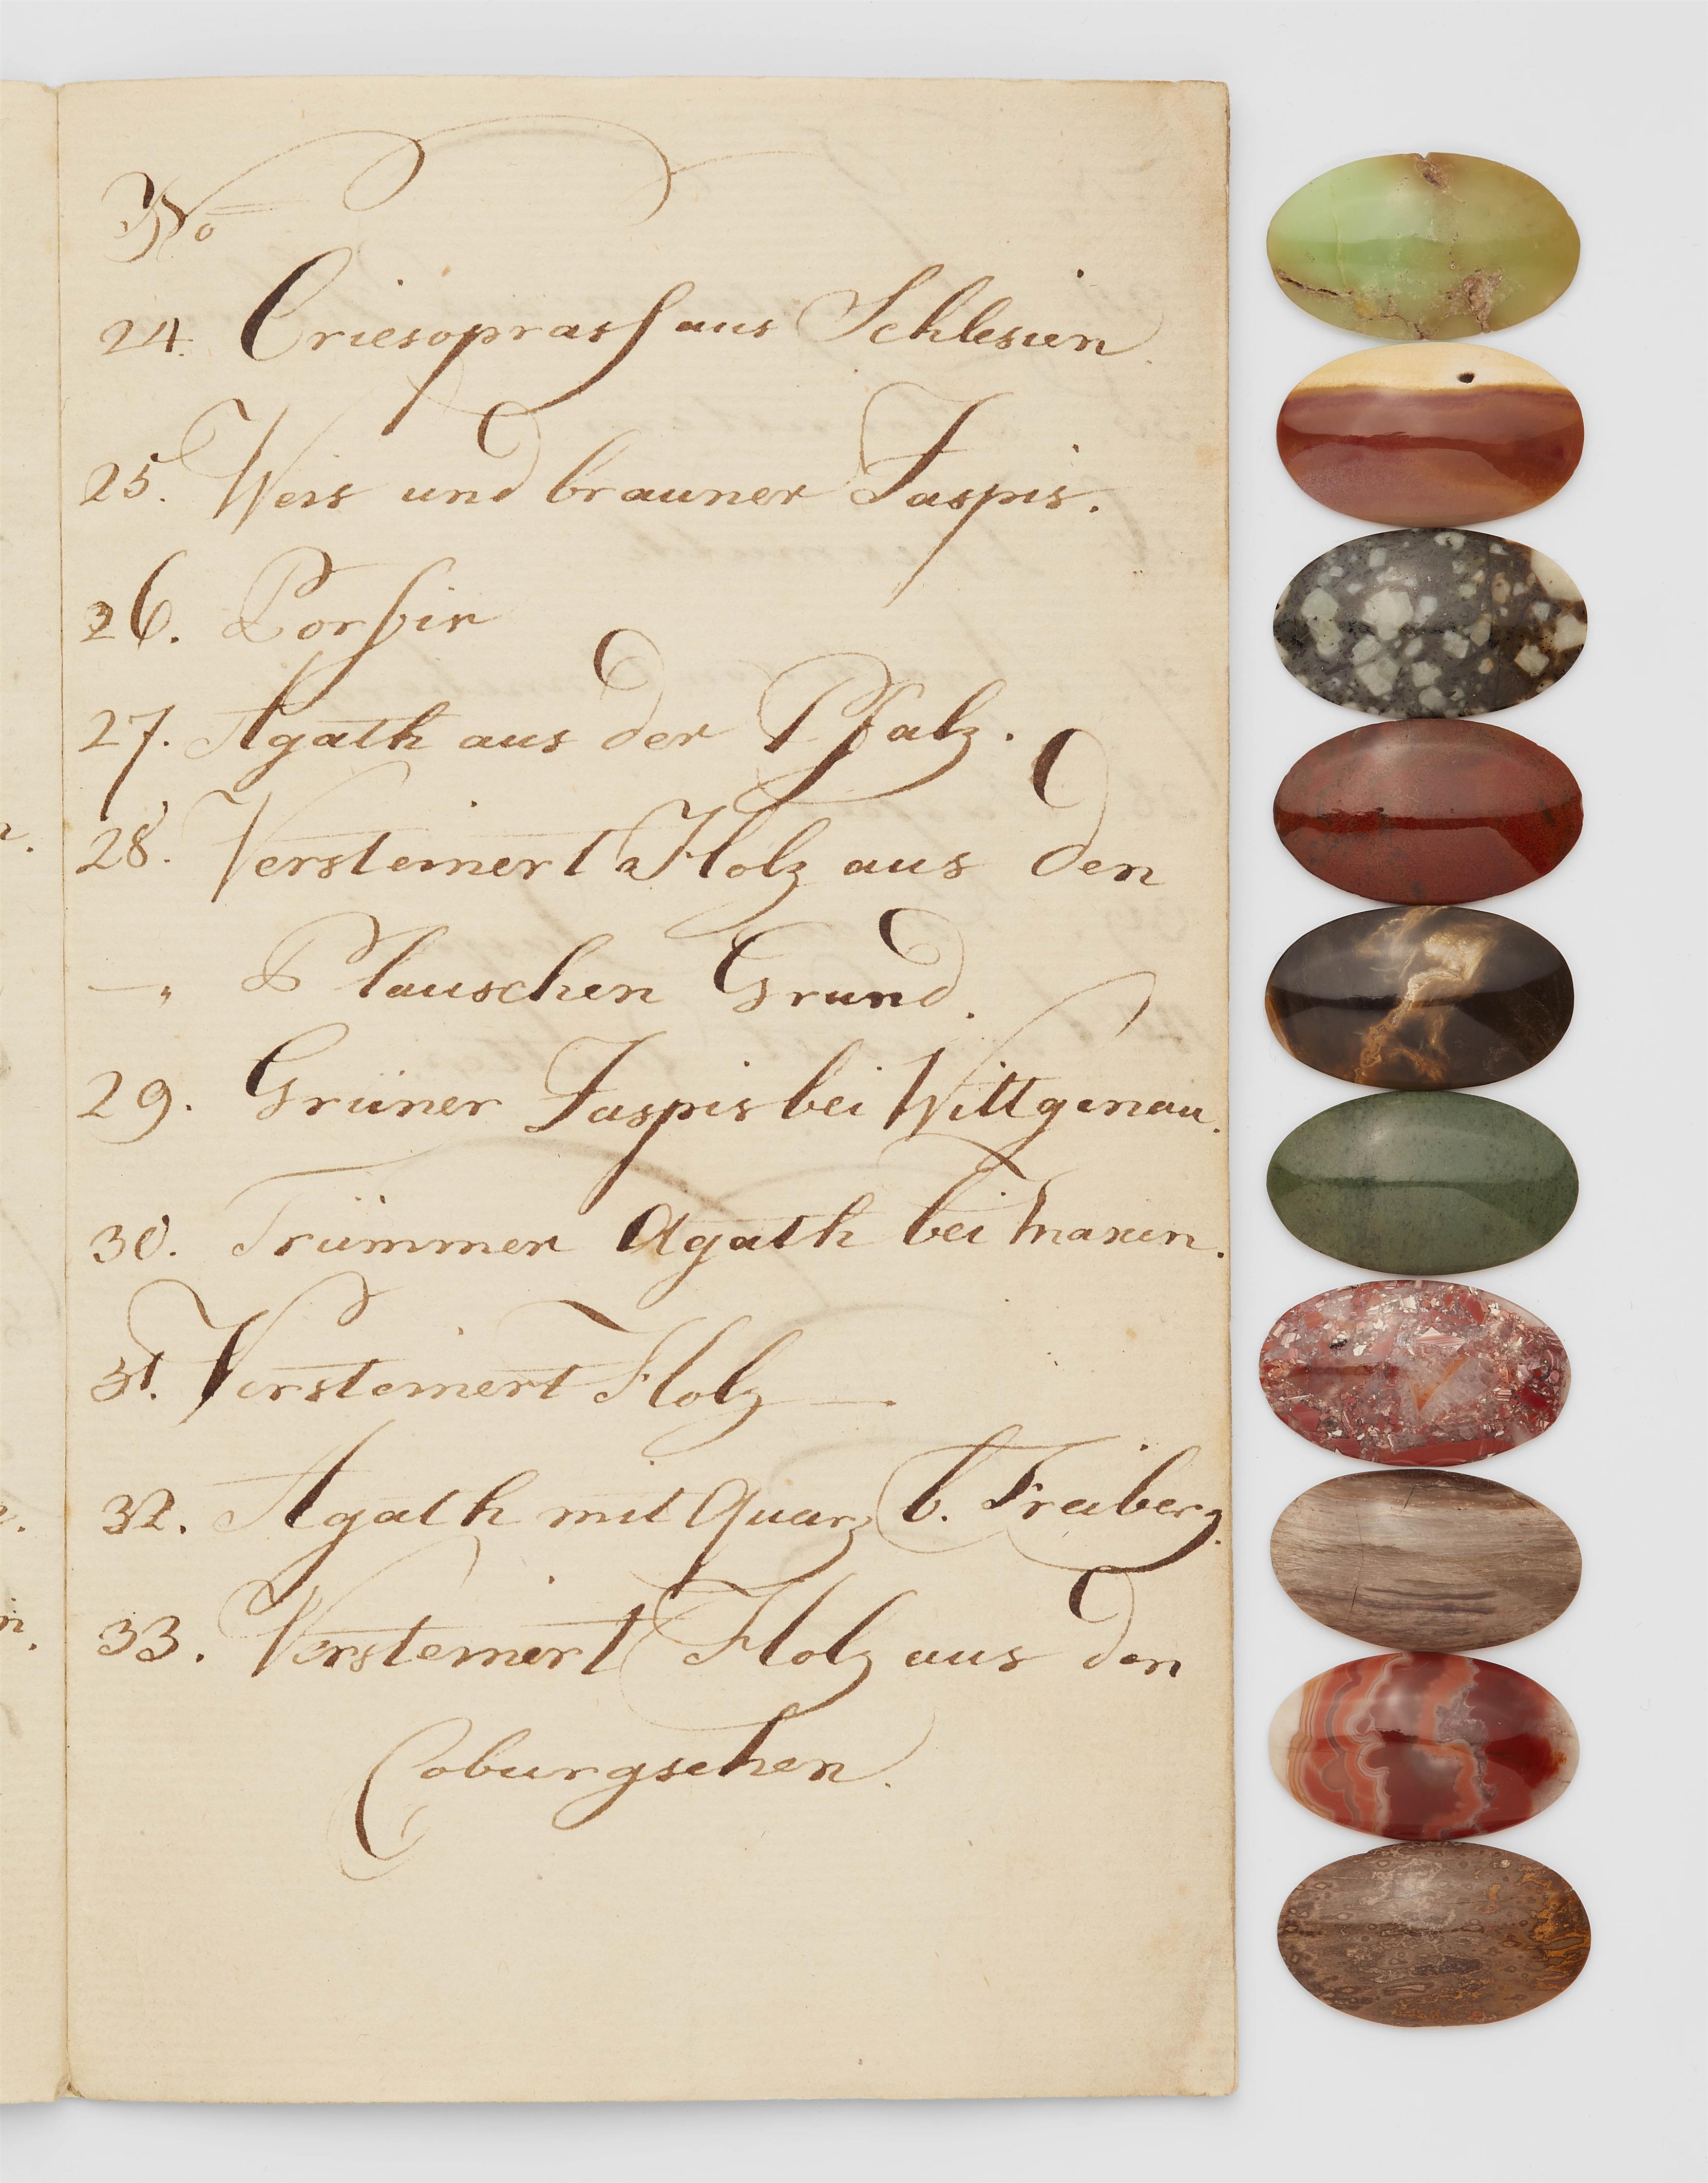 No
24. Criesoprasſ aus Schlesien.
25. Weis und brauner Jaspis.
26. Porfir
27. Agath aus der Pfalz.
28. Versteinert Holz aus den
—„ Plauschen Grund.
29. Grüner Jaspis bei Wittgenau.
30. Trümmer Agath bei Maxen.
31. Versteinert Holz —.
32. Agath mit Quarz b. Freiberg.
33. Versteinert Holz aus den
Coburgschen.